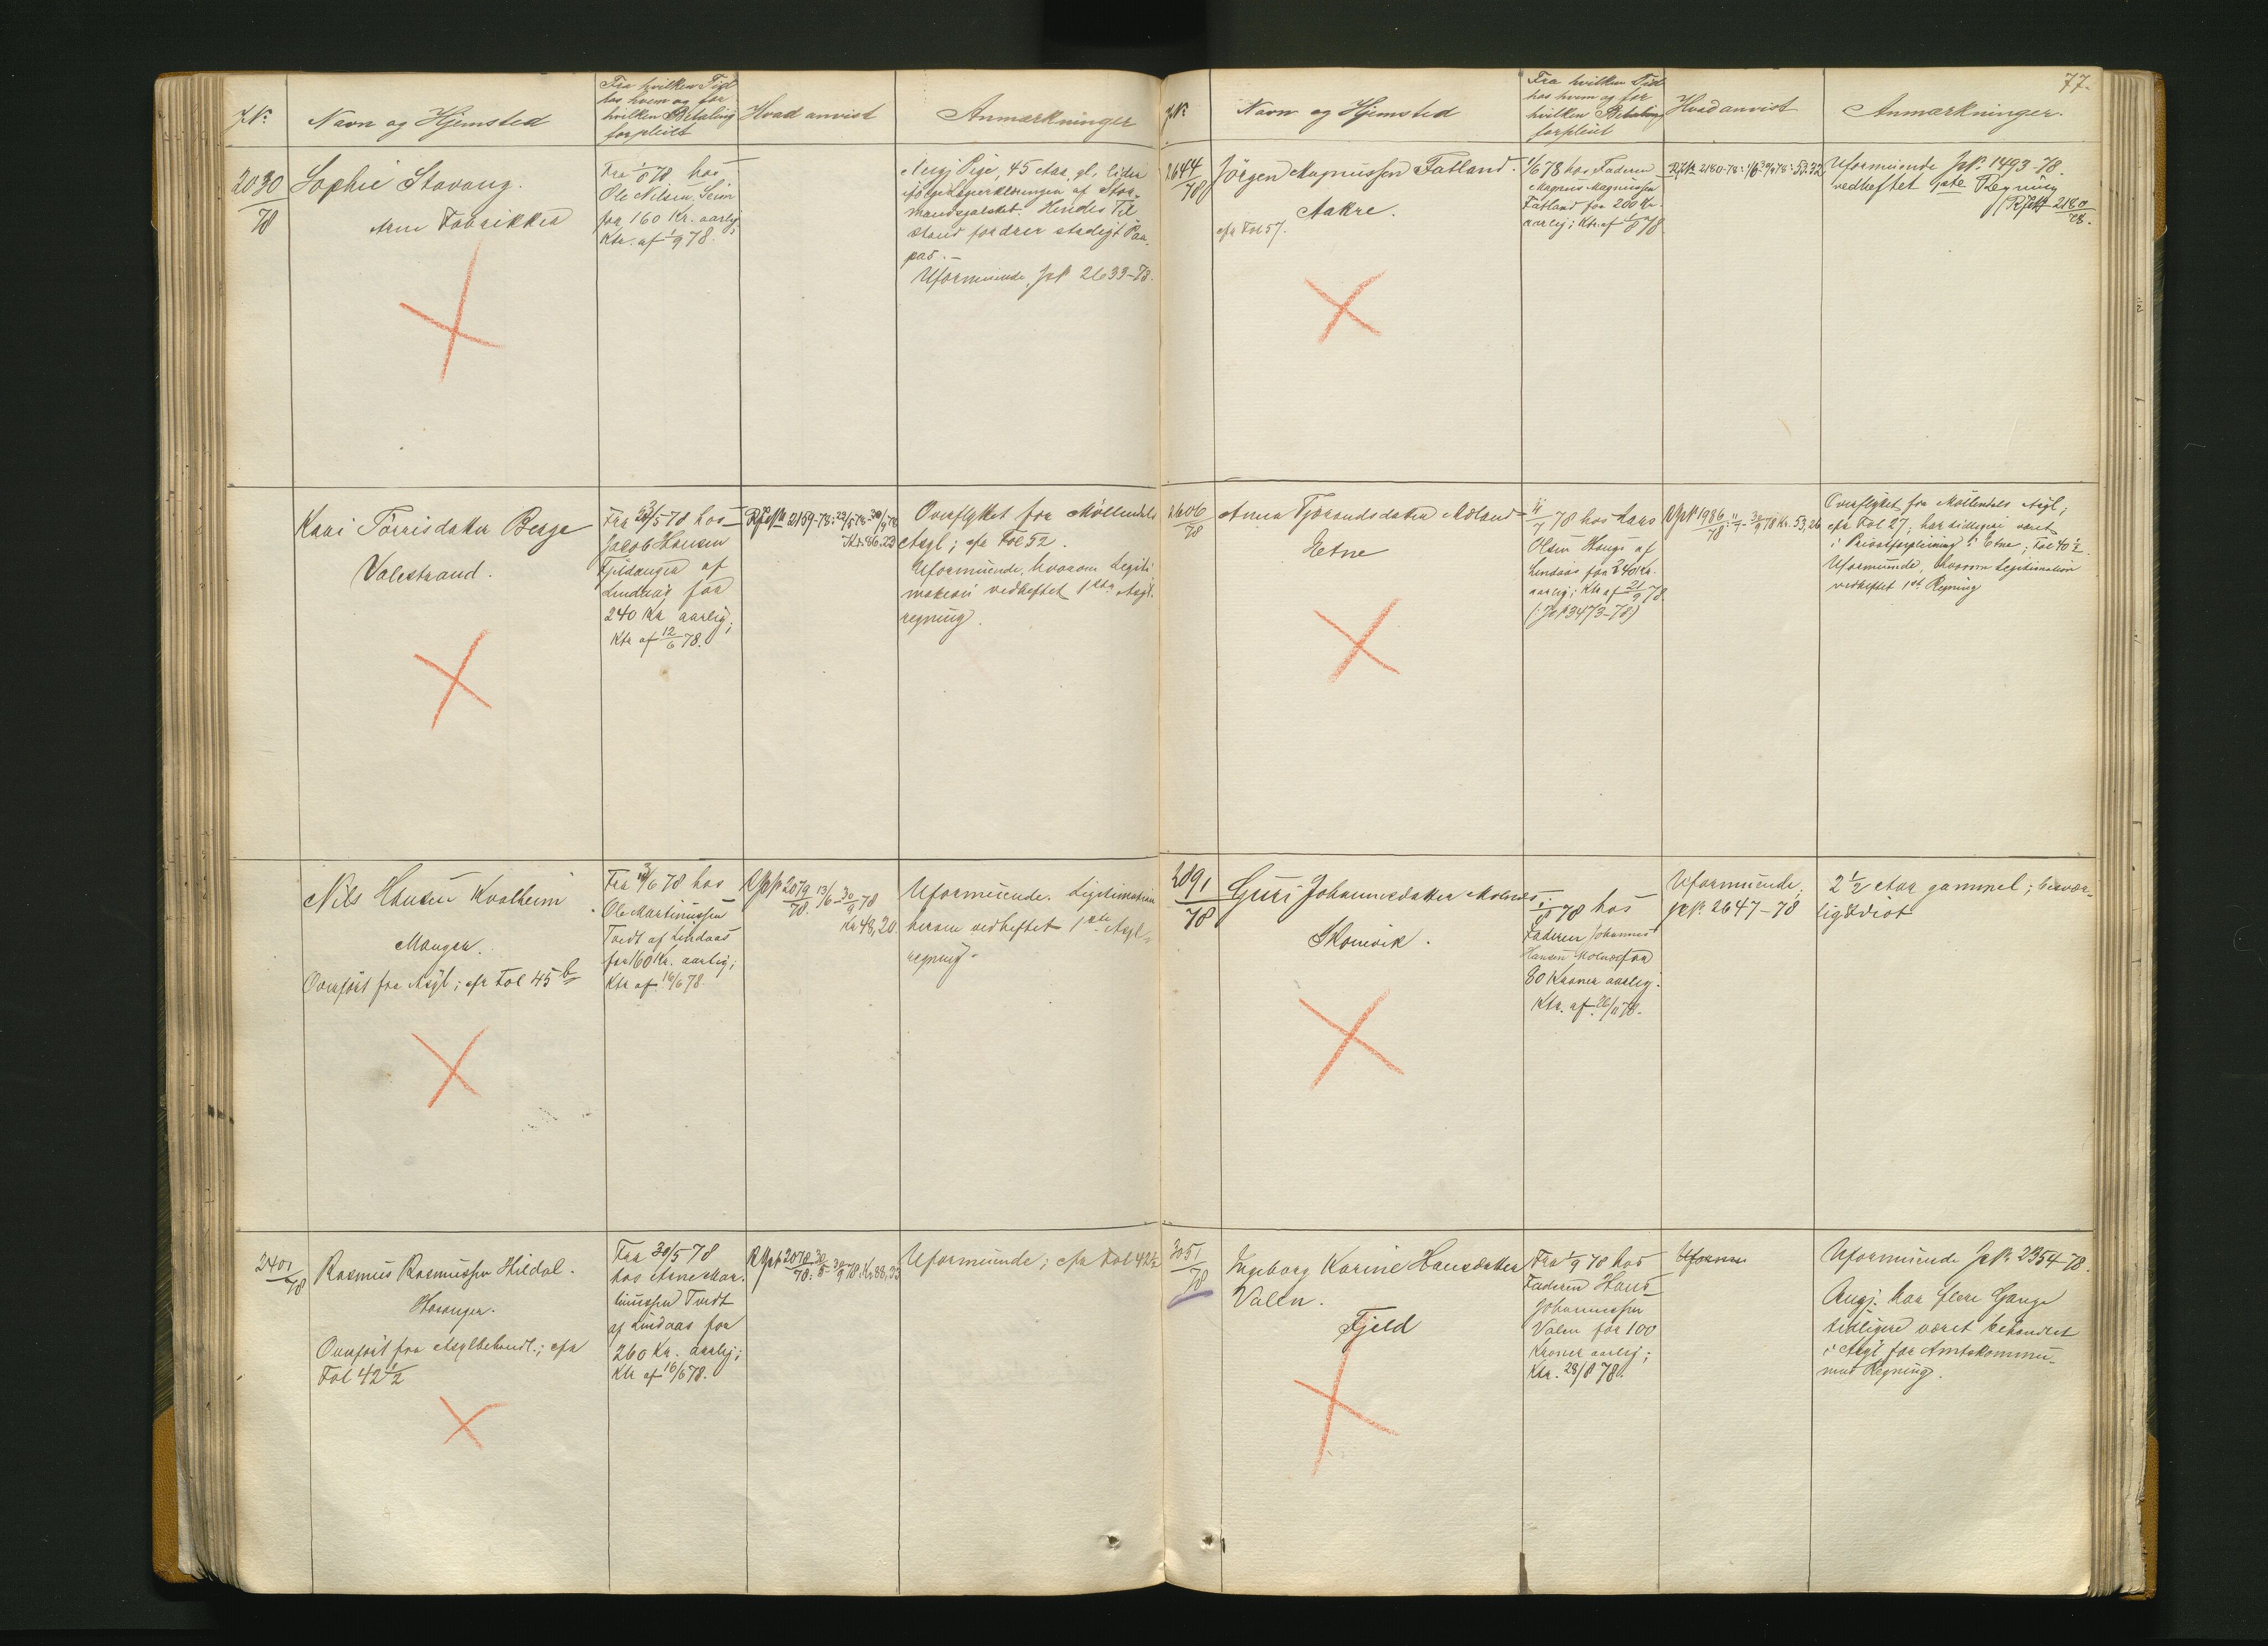 J.No.
Navn og Hjemsted
Fra hvilken Tid
hos hvem og for
hvilken Betaling
forpleiet
Hvad anvist
Anmærkninger
2030
78
Sophie Stavang.
Arne Fabrikker
Fra 1/8 78 hos
Ole Nilsen Seim
for 160 Kr. aarlig;
Ktr. af 1/9 78.
Angj Pige, 45 Aar gl, lider
ifølge Lægeerklæringen af Stor-
mandsgalskab. Hendes Til
stand fordrer stadigt Paa-
pas.-
Uformuende, JrN 2633-78.
Kari Torrisdatter Berge
Valestrand.
Fra 23/5 78 hos
Jakob Hansen
Fjeldanger af
Lindaas for
240 Kr aarlig;
Ktr af 12/6 78.
RJrNo 2159-78: 23/5 78-30/9 78
Kr. 86.23
Overflyttet fra Møllendals
Asyl; cfr Fol 52.
Uformuende, hvorom Legiti
mation vedheftet 1ste Asyl.
regning.
Nils Hansen Kvalheim
Manger.
Overført fra Asyl; cfr Fol 45 b
Fra 13/6 78 hos
Ole Martinussen
Tvedt af Lindaas
for 160 Kr. aarlig;
Ktr af 16/6 78.
RJrN 2079/78. 13/6-30/9 78
Kr 48,20.
Uformuende. Legitimation
herom vedheftet 1ste Asyl-
regning.
2401
78
Rasmus Rasmussen Hildal.
Hosanger.
Overført fra Asylbehandl.; cfr
Fol 42 1/2
Fra 30/5 78
hos Arne Mar-
tinussen Tvedt
af Lindaas for
260 Kr. aarlig;
Ktr af 16/6 78.
RJrN 2078/78: 30/5-30/9 78, Kr 88,33
Uformuende; cfr Fol 42 1/2
77.
J.No
Navn og Hjemsted
Fra hvilken Tid
hos hvem og for
hvilken Betaling
forpleiet
Hvad anvist
Anmærkninger.
2644
78
Jörgen Magnussen Fatland.
Aakre.
cfr Fol 57.
1/6 78 hos Faderen
Magnus Magnussen
Fatland for 200 Kr
aarlig; Ktr. af 1/8 78
RJrNo 2180-78: 1/6-30/9 78: 53.32
Uformuende JrN. 1493-78.
vedheftet 1ste Regning
RJrN 2180
78.
2606
78
Anna Tjörandsdatter Mæland
Etne
11/7 78 hos Lars
Olsen Hauge af
Lindaas for 240 Kr.
aarlig; Ktr af 21/9 78.
(:JrN 3473-78)
RJrN 1986/78: 11/7-30/9 78 Kr. 53,26
Overflyttet fra Møllendals Asyl;
cfr Fol 27; har tidligere været
i Privatforpleining i Etne; Fol 40 1/2.
Uformuende, hvorom Legitimation
vedheftet 1st Regning
2891
78
Guri Johannesdatter Molnes
Skonevik.
1/8 78 hos
Faderen Johannes
Hansen Molnes for
80 Kroner aarlig.
Ktr. af 26/11 78.
Uformuende;
JrN. 2647-78
2 1/2 Aar gammel; besvær-
lig Idiot
3051
78
Ingeborg Karine Hansdatter
Valen.
Fjeld
Fra 1/9 78 hos
Faderen Hans
Johannessen
Valen for 100
Kroner aarlig;
Ktr. 28/8 78.
Uform
Uformuende JrN. 2354-78.
Angj. har flere Gange
tidligere været behandlet
i Asyl for Amtskommu-
nens Regning.